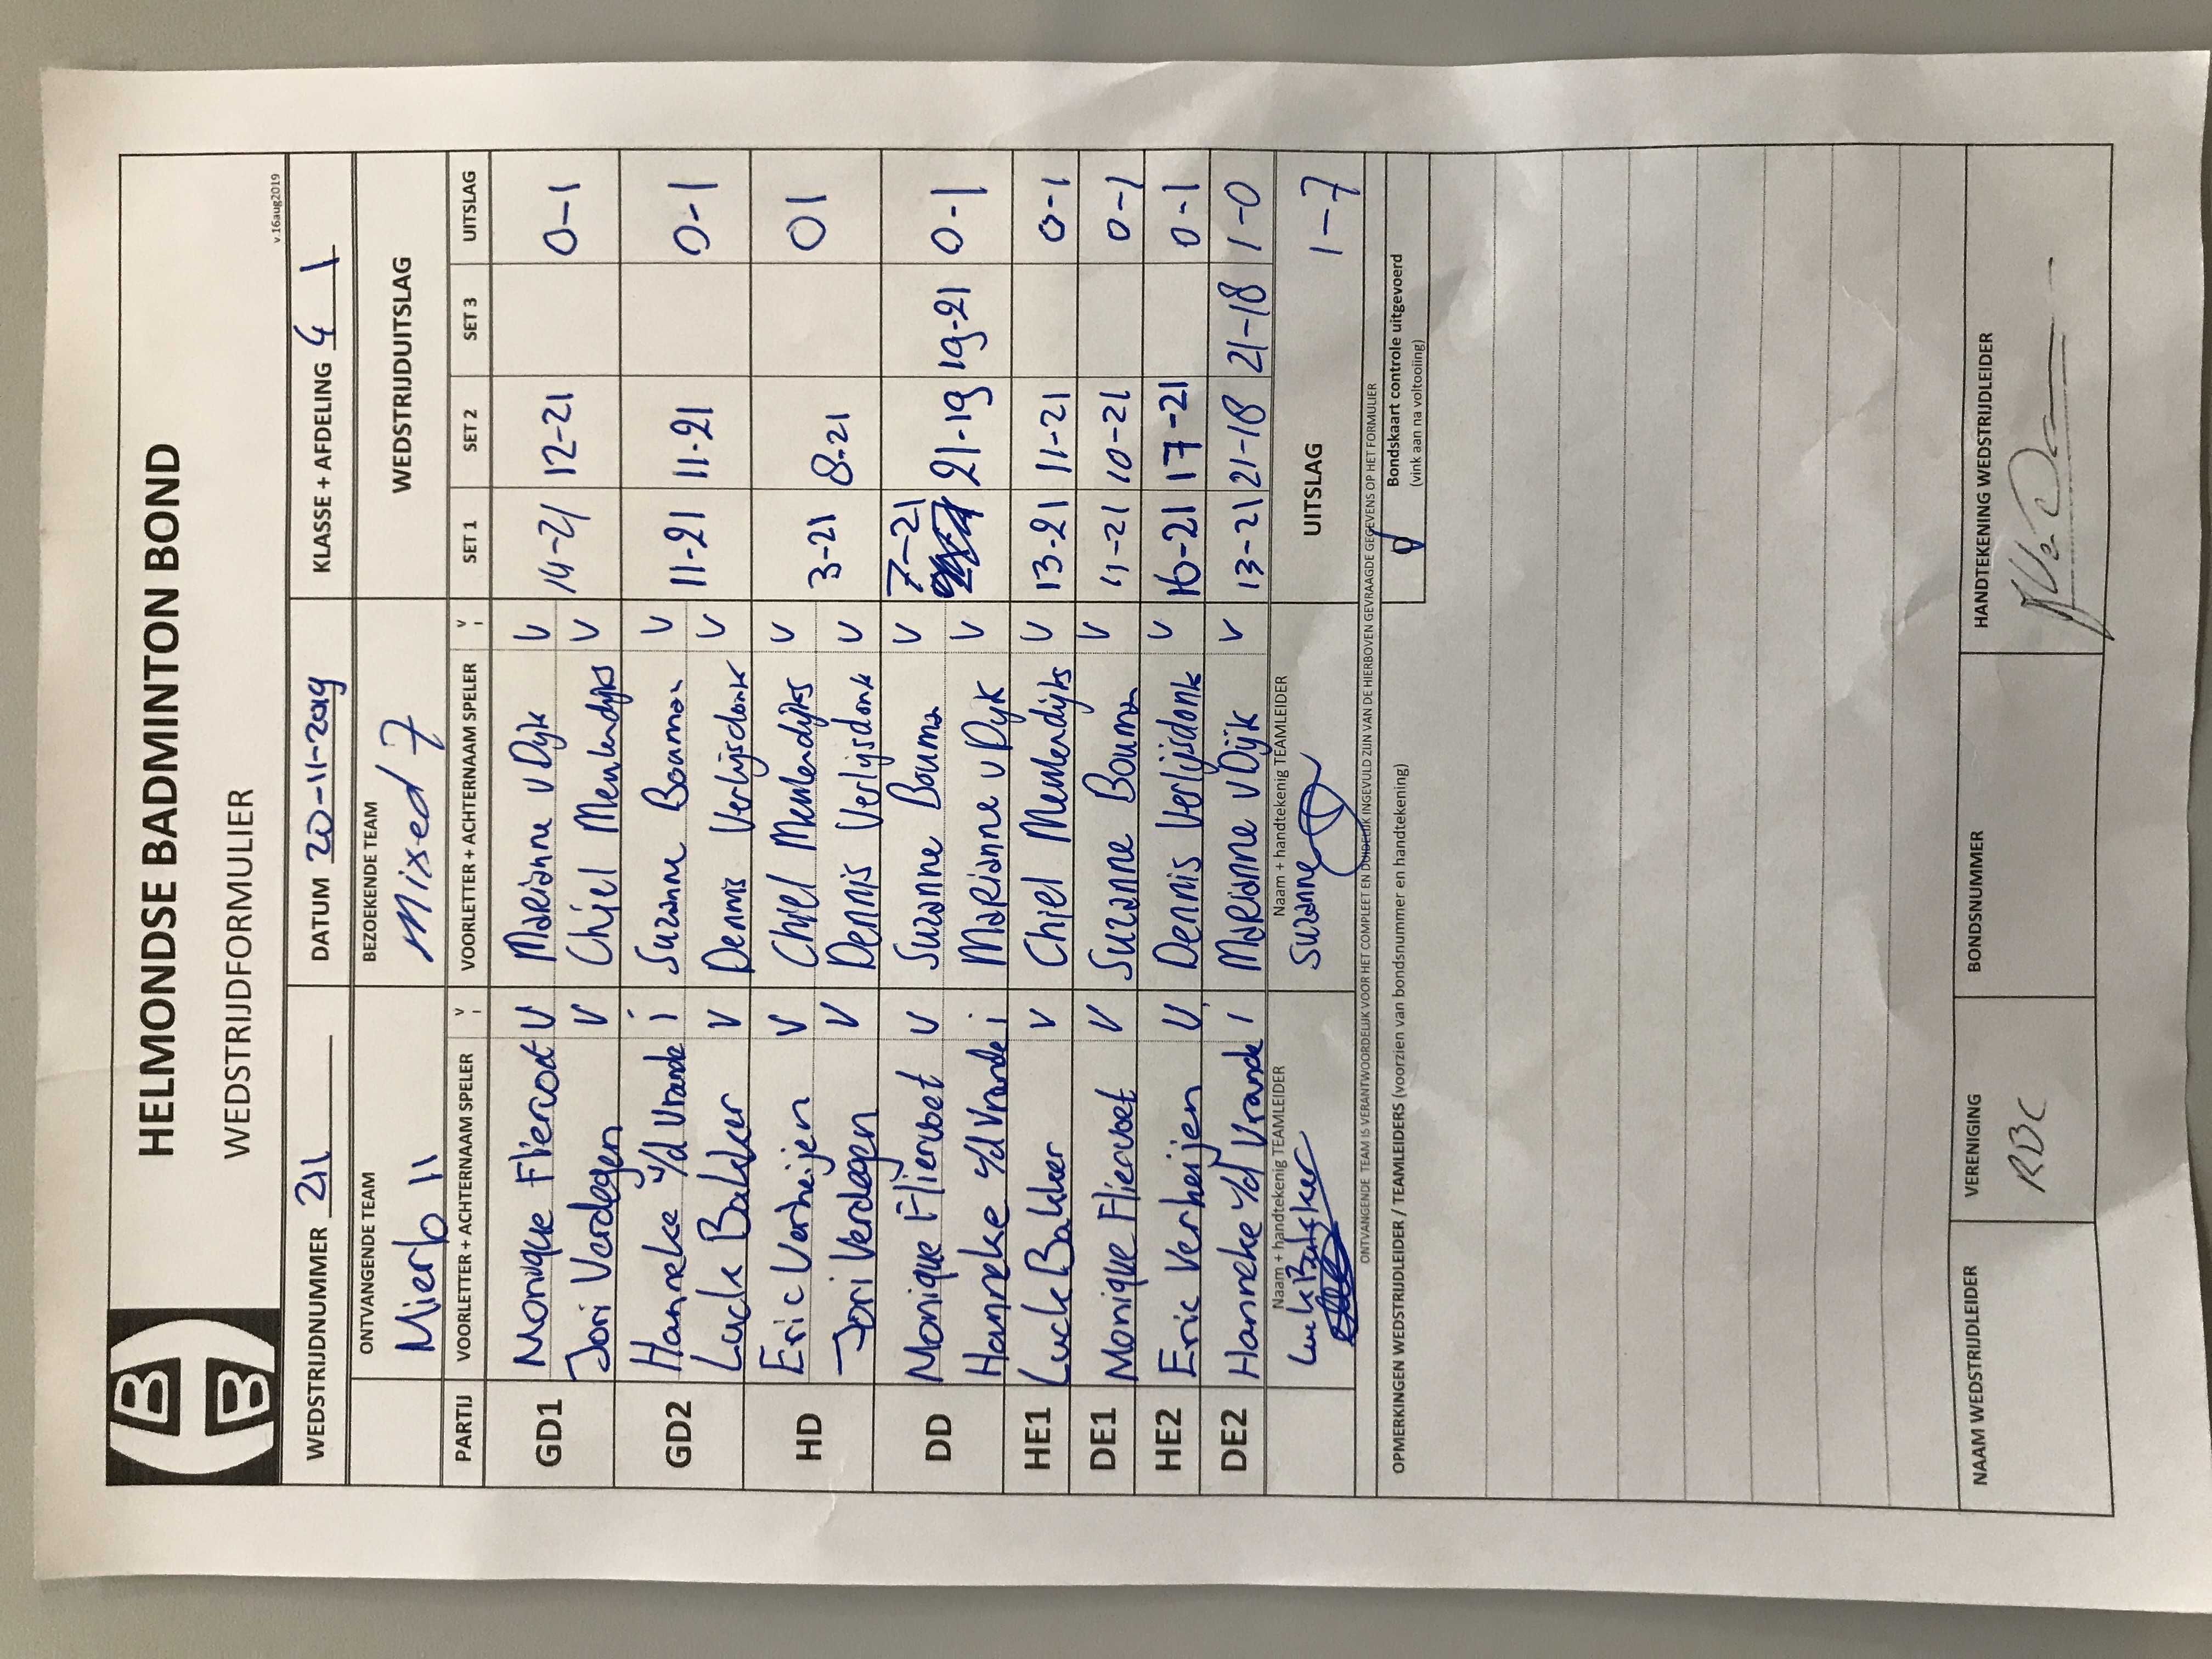 HELMONDSE BADMINTON BOND
WEDSTRIJDFORMULIER
v.16aug2019
WEDSTRIJDNUMMER 211 DATUM 20-11-2019 KLASSE + AFDELING 4 1
ONTVANGENDE TEAM BEZOEKENDE TEAM WEDSTRIJDUITSLAG
Mierlo 11 Mixed 7
PARTIJ VOORLETTER + ACHTERNAAM SPELER V I VOORLETTER + ACHTERNAAM SPELER V I SET 1 SET 2 SET 3 UITSLAG
GD1 Monique Fliervoet V Marianne v Dijk V 14-21 12-21 0-1
Jori Verdegen V Chiel Meulendijks V
GD2 Hanneke v/d Vrande i Suzanne Bouman V 11-21 11-21 0-1
Luck Bakker V Dennis Verlijsdonk V
HD Eric Verheijen V Chiel Meulendijks V 3-21 8-21 0 1
Jori Verdegen V Dennis Verlijsdonk V
DD Monique Fliervoet V Suzanne Bouma V 7-21 21-19 19-21 0-1
Hanneke v/d Vrande i Marianne v Dijk V
HE1 Luck Bakker V Chiel Meulendijks V 13-21 11-21 0-1
DE1 Monique Fliervoet V Suzanne Bouma V 4-21 10-21 0-1
HE2 Eric Verheijen V Dennis Verlijsdonk V 16-21 17-21 0-1
DE2 Hanneke v/d Vrande i Marianne v Dijk V 13-21 21-18 21-18 1-0
Naam + handtekenig TEAMLEIDER Naam + handtekenig TEAMLEIDER UITSLAG 1-7
Luck Bakker Suzanne
ONTVANGENDE TEAM IS VERANTWOORDELIJK VOOR HET COMPLEET EN DUIDELIJK INGEVULD ZIJN VAN DE HIERBOVEN GEVRAAGDE GEGEVENS OP HET FORMULIER
OPMERKINGEN WEDSTRIJDLEIDER / TEAMLEIDERS (voorzien van bondsnummer en handtekening)
Bondskaart controle uitgevoerd
(vink aan na voltooiing)
NAAM WEDSTRIJDLEIDER VERENIGING BONDSNUMMER HANDTEKENING WEDSTRIJDLEIDER
RBC